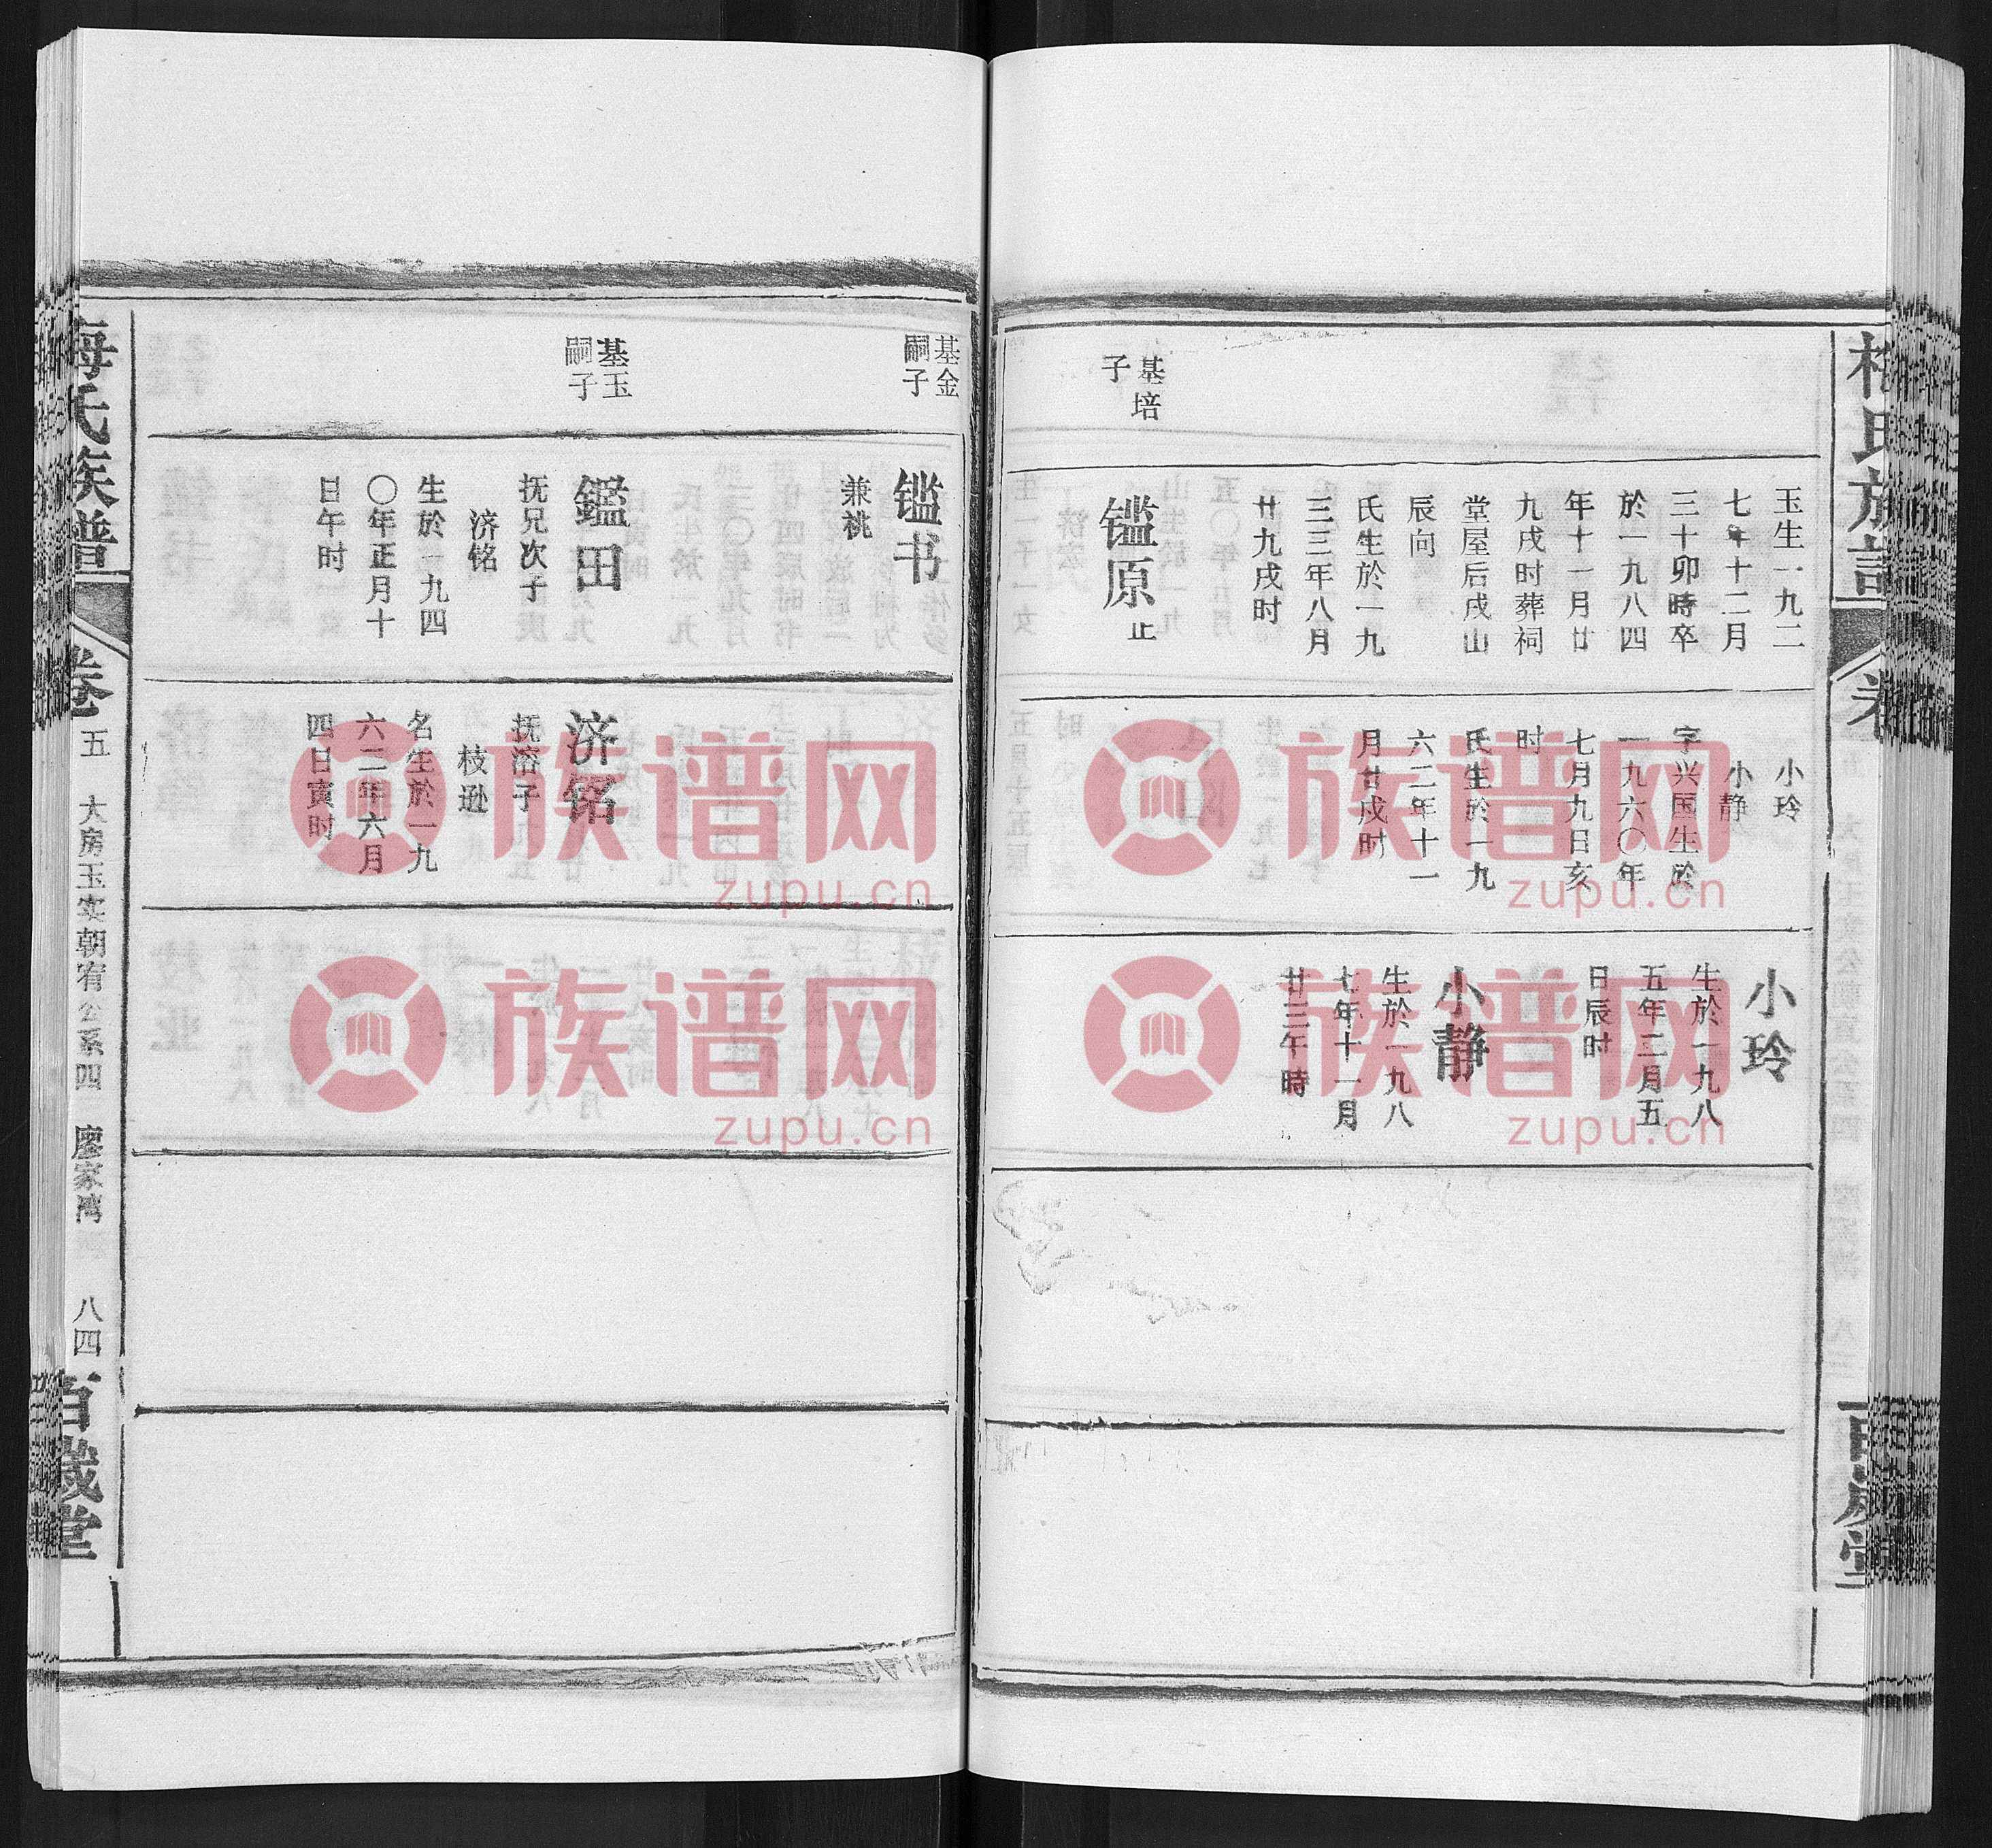 基培
子
玉生一九二
七年十二月
三十卯時卒
於一九八四
年十一月廿
九戌时葬祠
堂屋后戌山
辰向
氏生於一九
三三年八月
廿九戌时
鑑原 止
小玲
小静
字兴国生於
一九六〇年
七月九日亥
时
氏生於一九
六二年十一
月廿戌时
小玲
生於一九八
五年二月五
日辰时
小静
生於一九八
七年十一月
廿三午時
基金
嗣子
基玉
嗣子
鑑书
兼祧
鑑田
抚兄次子
济铭
生於一九四
〇年正月十
日午时
济铭
抚溶子
枝逊
名生於一九
六二年六月
四日寅时
梅氏族譜
卷五
大房玉实朝宥公系四 廖家湾
八四
百歲堂
族谱网
zupu.cn
族谱网
zupu.cn
族谱网
zupu.cn
族谱网
zupu.cn